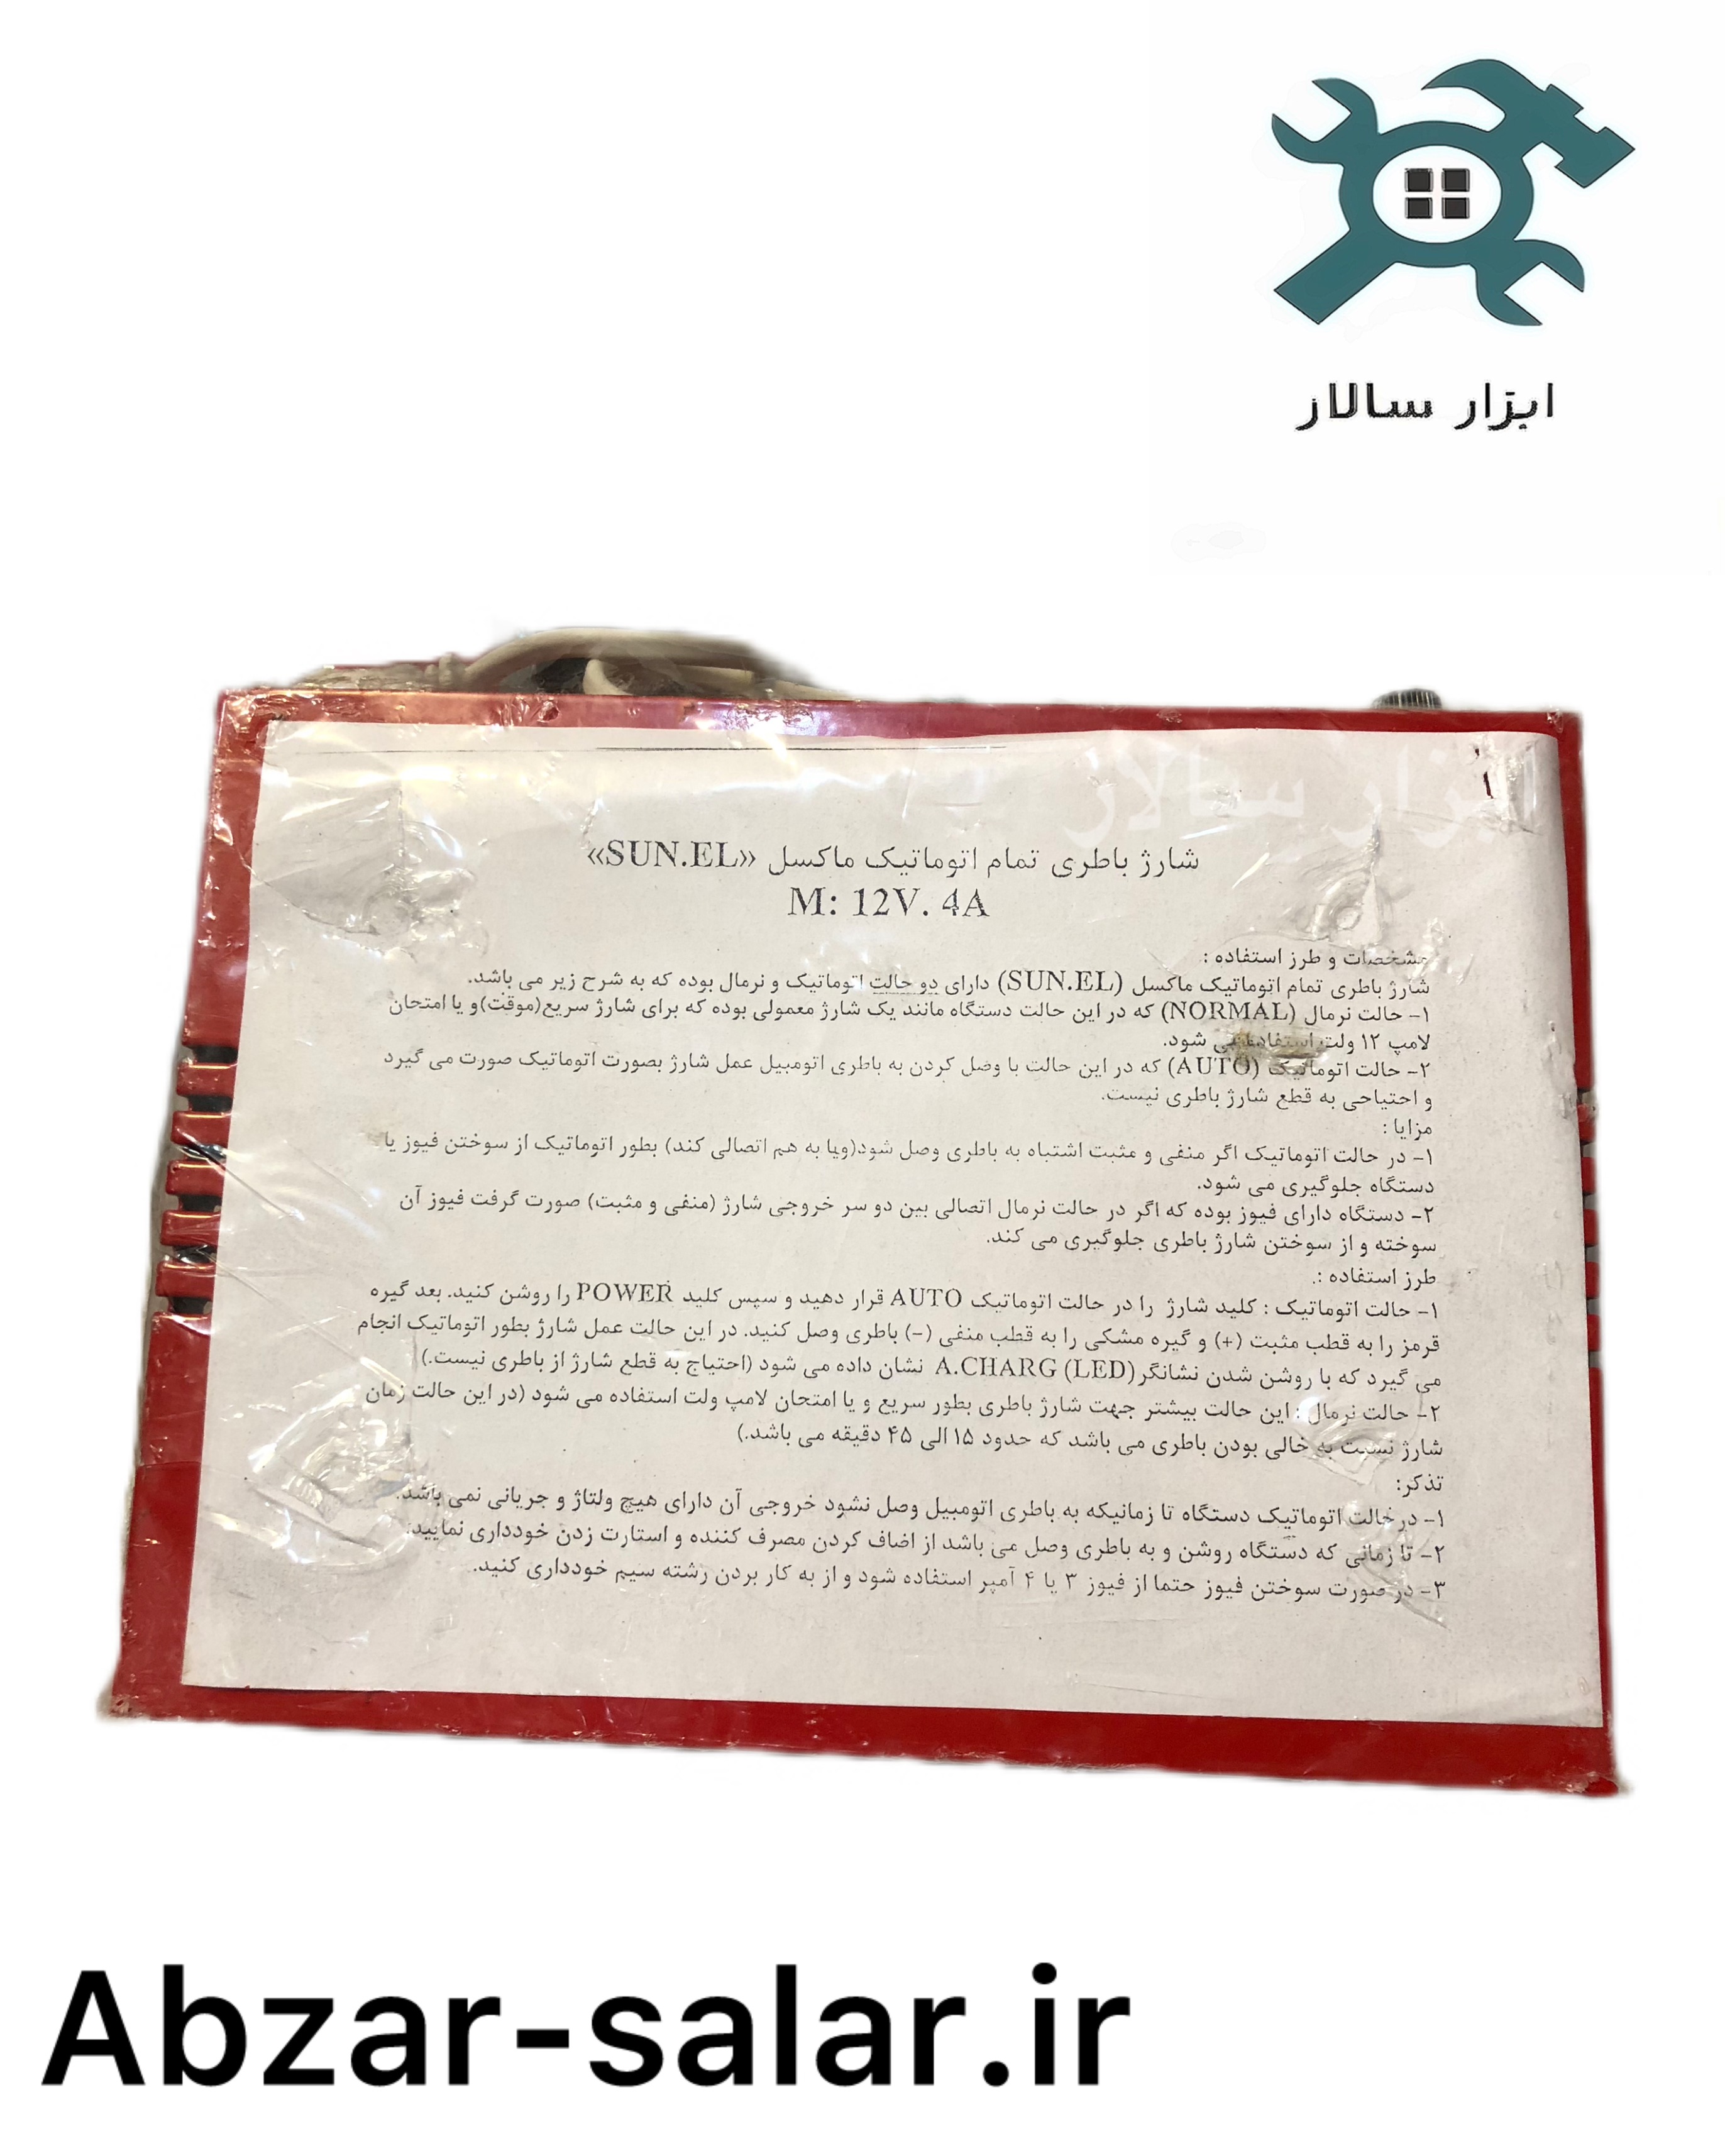 ابزار سالار
ابزار سالار
شارژ باطری تمام اتوماتیک ماکسل «SUN.EL»
M: 12V. 4A
مشخصات و طرز استفاده :
شارژ باطری تمام اتوماتیک ماکسل (SUN.EL) دارای دو حالت اتوماتیک و نرمال بوده که به شرح زیر می باشد.
۱- حالت نرمال (NORMAL) که در این حالت دستگاه مانند یک شارژ معمولی بوده که برای شارژ سریع(موقت)و یا امتحان
لامپ ۱۲ ولت استفاده می شود.
۲- حالت اتوماتیک (AUTO) که در این حالت با وصل کردن به باطری اتومبیل عمل شارژ بصورت اتوماتیک صورت می گیرد
و احتیاجی به قطع شارژ باطری نیست.
مزایا :
۱- در حالت اتوماتیک اگر منفی و مثبت اشتباه به باطری وصل شود(ویا به هم اتصالی کند) بطور اتوماتیک از سوختن فیوز یا
دستگاه جلوگیری می شود.
۲- دستگاه دارای فیوز بوده که اگر در حالت نرمال اتصالی بین دو سر خروجی شارژ (منفی و مثبت) صورت گرفت فیوز آن
سوخته و از سوختن شارژ باطری جلوگیری می کند.
طرز استفاده :.
۱- حالت اتوماتیک : کلید شارژ را در حالت اتوماتیک AUTO قرار دهید و سپس کلید POWER را روشن کنید. بعد گیره
قرمز را به قطب مثبت (+) و گیره مشکی را به قطب منفی (-) باطری وصل کنید. در این حالت عمل شارژ بطور اتوماتیک انجام
می گیرد که با روشن شدن نشانگر(LED) A.CHARG نشان داده می شود (احتیاج به قطع شارژ از باطری نیست.)
۲- حالت نرمال : این حالت بیشتر جهت شارژ باطری بطور سریع و یا امتحان لامپ ولت استفاده می شود (در این حالت زمان
شارژ نسبت به خالی بودن باطری می باشد که حدود ۱۵ الی ۴۵ دقیقه می باشد.)
تذکر:
۱- درحالت اتوماتیک دستگاه تا زمانیکه به باطری اتومبیل وصل نشود خروجی آن دارای هیچ ولتاژ و جریانی نمی باشد.
۲- تا زمانی که دستگاه روشن و به باطری وصل می باشد از اضاف کردن مصرف کننده و استارت زدن خودداری نمایید.
۳- در صورت سوختن فیوز حتما از فیوز ۳ یا ۴ آمپر استفاده شود و از به کار بردن رشته سیم خودداری کنید.
Abzar-salar.ir